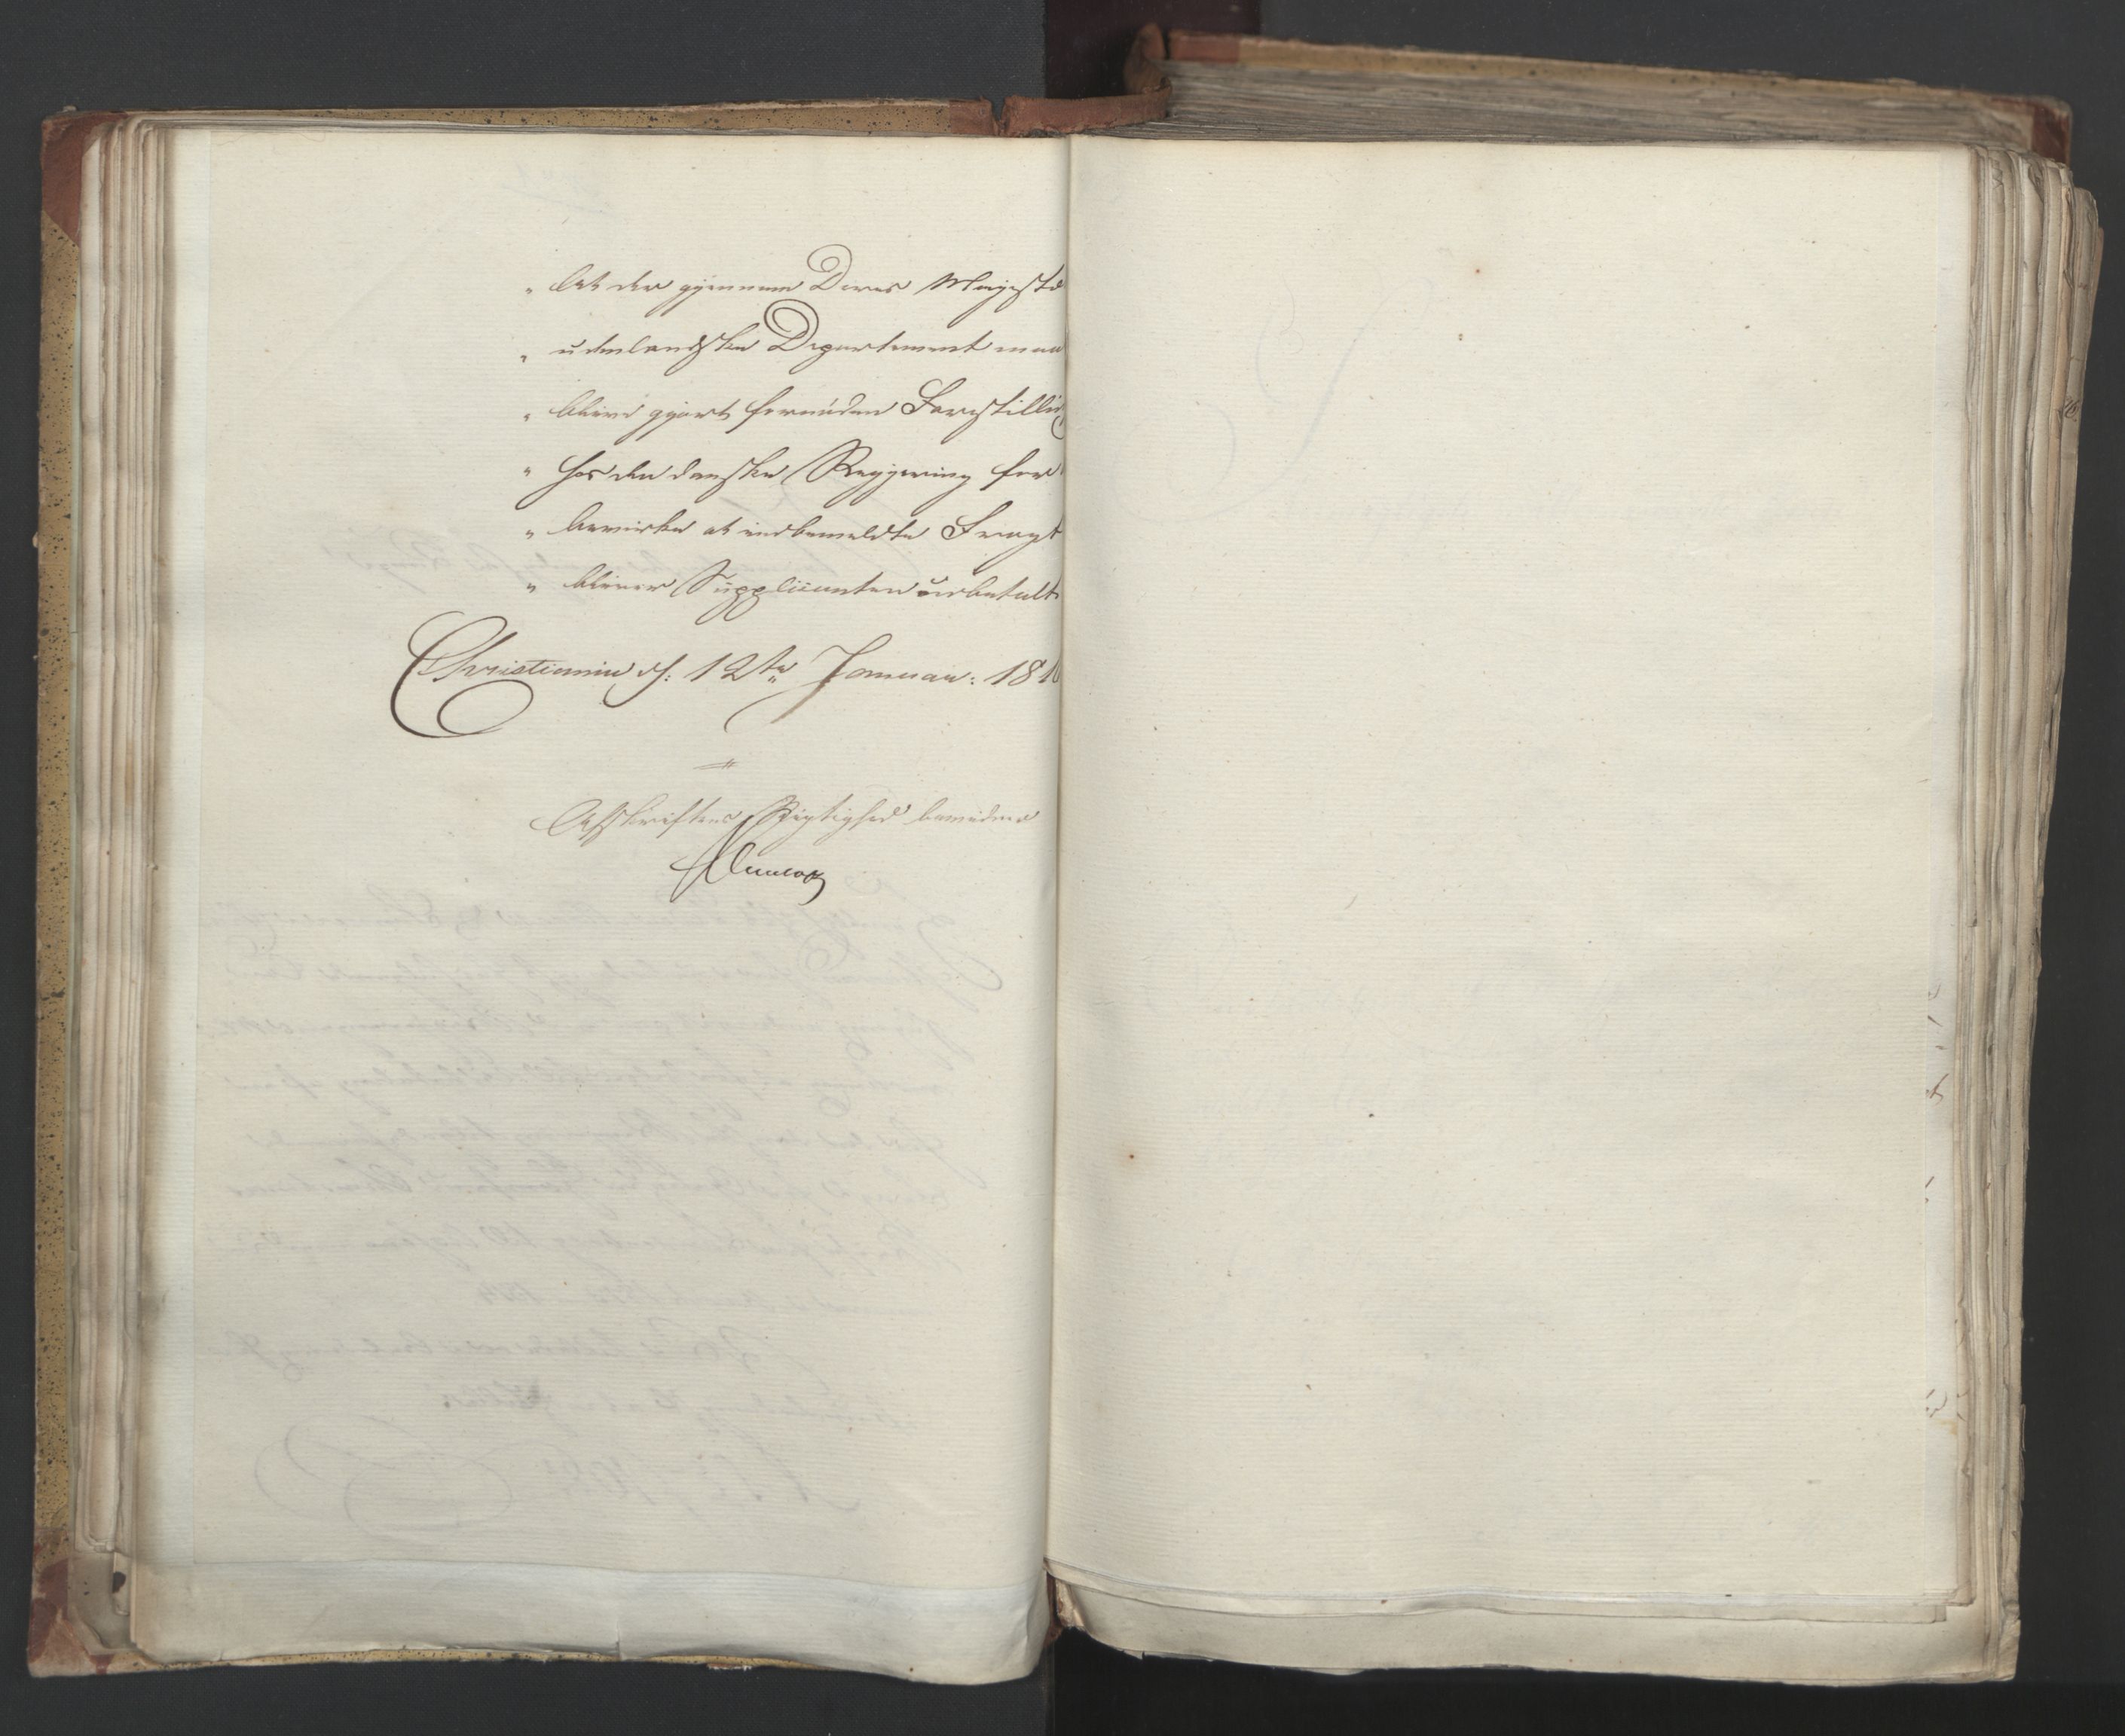 " At der gjennem Deres Majestæ
" udenlandske Departement maa
" blive gjort fornöden Forestillin
" hos den danske Regjering for
" bevirke at indbemeldte Fragt
" bliver Supplicanten udbetalt
Christiania d: 12te Januar: 181
Afskriftens Rigtighed bevidner